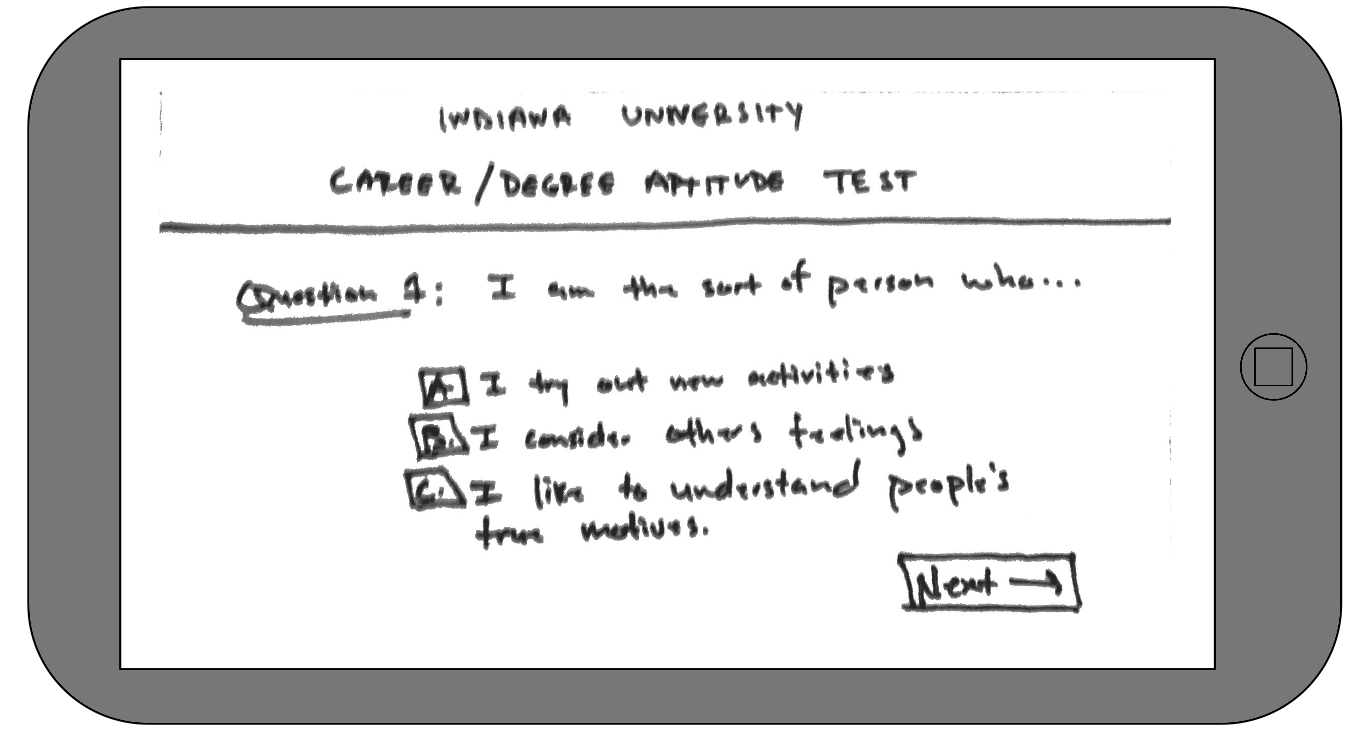 INDIANA UNIVERSITY
CAREER/DEGREE APTITUDE TEST
Question 1: I am the sort of person who...
A. I try out new activities
B. I consider others feelings
C. I like to understand people's
true motives.
Next →